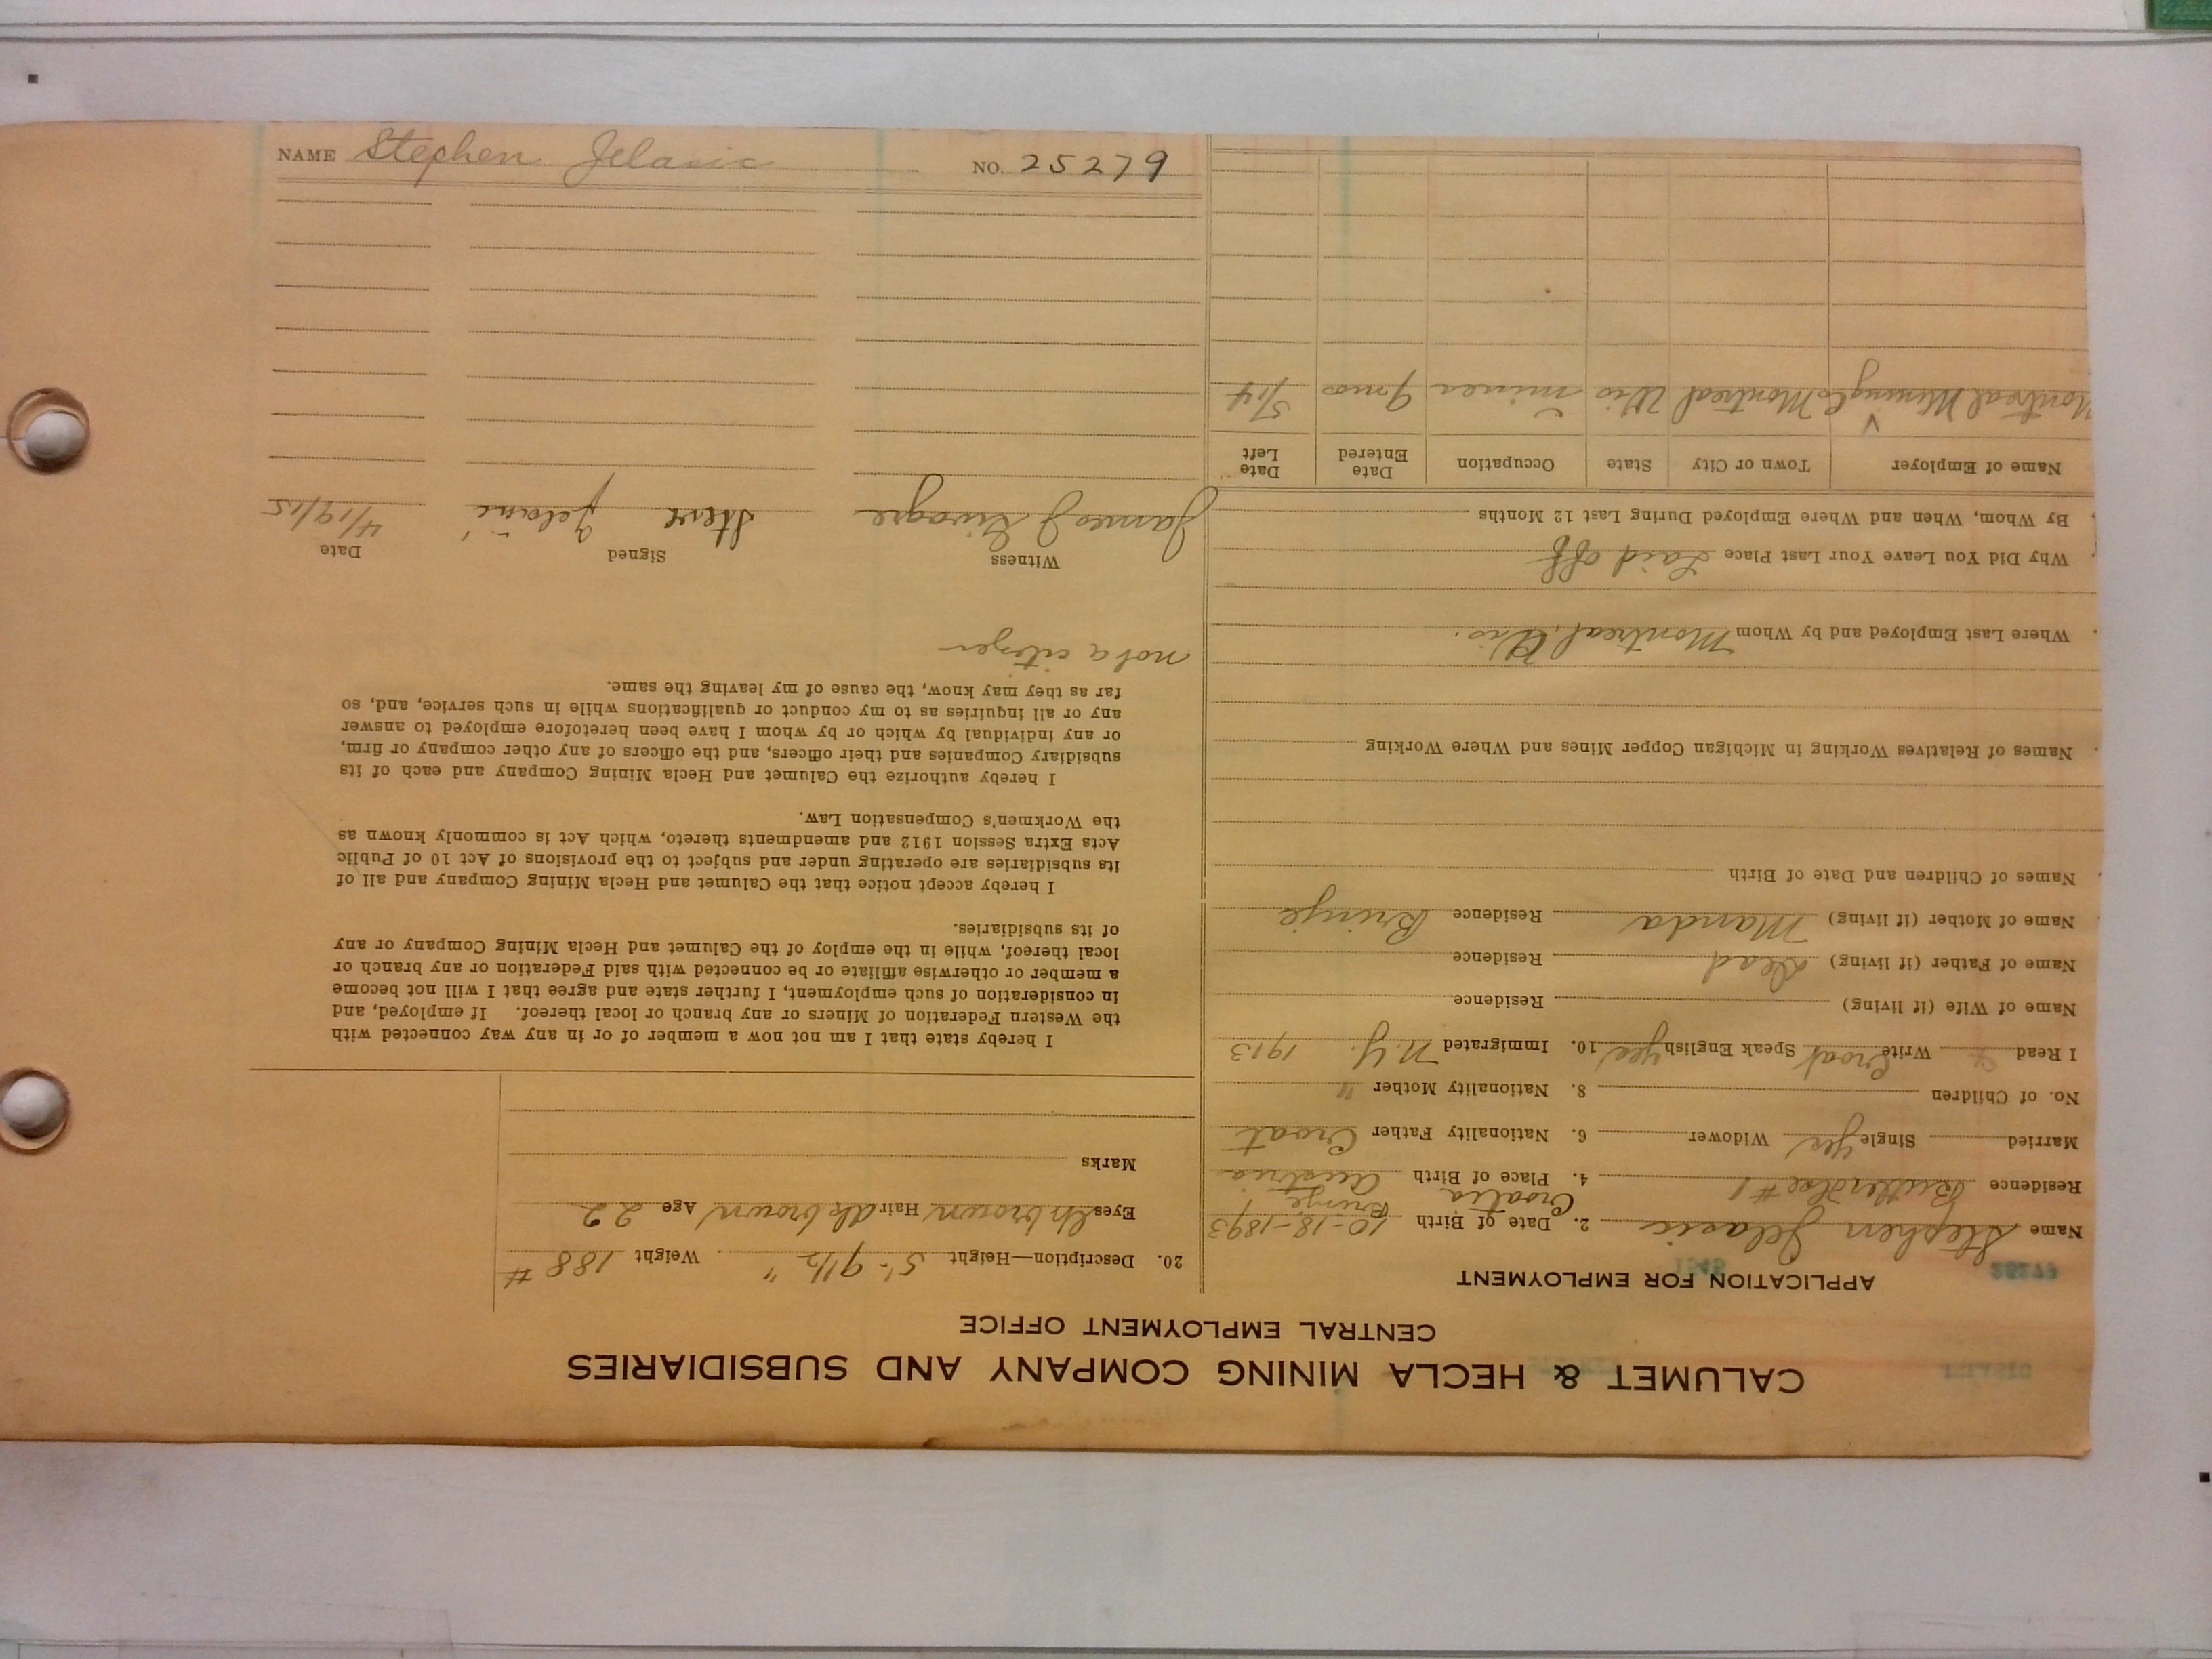 CALUMET & HECLA MINING COMPANY AND SUBSIDIARIES
CENTRAL EMPLOYMENT OFFICE
APPLICATION FOR EMPLOYMENT
25279
Name Stephen Jelacic 2. Date of Birth 10-18-1893
Residence #1 4. Place of Birth Croatia Brinje, Austria
Married Single Yes Widower 6. Nationality Father Croat
No. of Children 8. Nationality Mother "
I Read Write Croat Speak English yes 10. Immigrated N.Y. 1913
Name of Wife (if living) Residence
Name of Father (if living) Dead Residence
Name of Mother (if living) Manda Residence Brinje
Names of Children and Date of Birth
Names of Relatives Working in Michigan Copper Mines and Where Working
Where Last Employed and by Whom Montreal, Wis.
Why Did You Leave Your Last Place Laid off
By Whom, When and Where Employed During Last 12 Months
Name of Employer Town or City State Occupation Date Entered Date Left
Montreal Mining Co Montreal Wis miner 9 mos 5/14
20. Description—Height 5'-9 1/2" Weight 188#
Eyes lh brown Hair dk brown Age 22
Marks
I hereby state that I am not now a member of or in any way connected with
the Western Federation of Miners or any branch or local thereof. If employed, and
in consideration of such employment, I further state and agree that I will not become
a member or otherwise affiliate or be connected with said Federation or any branch or
local thereof, while in the employ of the Calumet and Hecla Mining Company or any
of its subsidiaries.
I hereby accept notice that the Calumet and Hecla Mining Company and all of
its subsidiaries are operating under and subject to the provisions of Act 10 of Public
Acts Extra Session 1912 and amendments thereto, which Act is commonly known as
the Workmen's Compensation Law.
I hereby authorize the Calumet and Hecla Mining Company and each of its
subsidiary Companies and their officers, and the officers of any other company or firm,
or any individual by which or by whom I have been heretofore employed to answer
any or all inquiries as to my conduct or qualifications while in such service, and, so
far as they may know, the cause of my leaving the same.
not a citizen
Witness Signed Date
James J Steve 4/19/15
NAME Stephen Jelacic NO. 25279